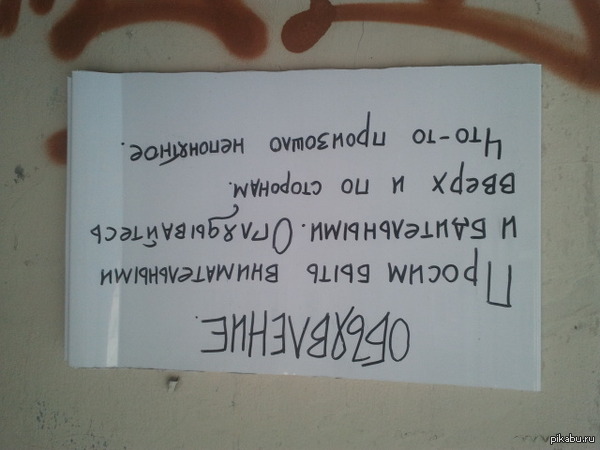 ОБЪЯВЛЕНИЕ.
Просим быть внимательными
и бдительными. Оглядывайтесь
вверх и по сторонам.
Что-то произошло непонятное.
pikabu.ru